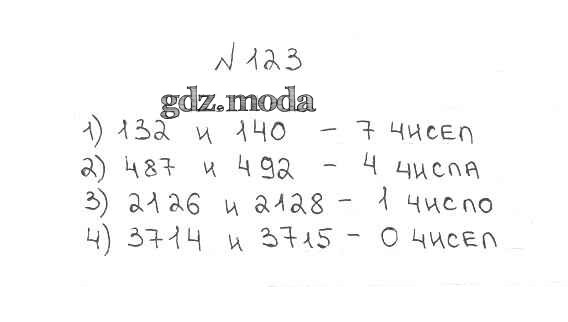 № 123
gdz.moda
1) 132 и 140 – 7 чисел
2) 487 и 492 – 4 числа
3) 2126 и 2128 – 1 число
4) 3714 и 3715 – 0 чисел